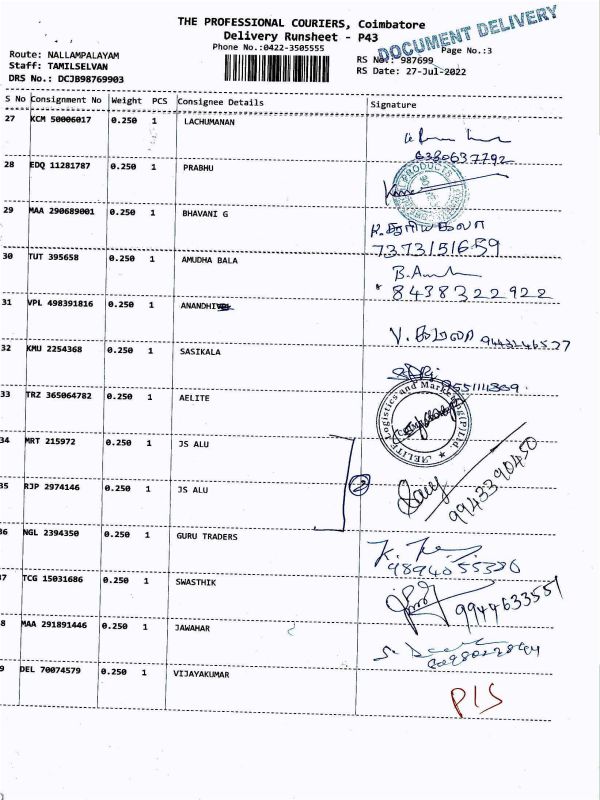 THE PROFESSIONAL COURIERS, Coimbatore
Delivery Runsheet - P43
DOCUMENT DELIVERY
Phone No.:0422-3505555
Page No.:3
Route: NALLAMPALAYAM
Staff: TAMILSELVAN
DRS No.: DCJB98769903
RS No.: 987699
RS Date: 27-Jul-2022
S No Consignment No Weight PCS Consignee Details Signature
27 KCM 50006017 0.250 1 LACHUMANAN
6380637792
28 EDQ 11281787 0.250 1 PRABHU
29 MAA 290689001 0.250 1 BHAVANI G
7373151659
30 TUT 395658 0.250 1 AMUDHA BALA
8438322922
31 VPL 498391816 0.250 1 ANANDHI
32 KMU 2254368 0.250 1 SASIKALA
33 TRZ 365064782 0.250 1 AELITE
AELITE Logistics and Marketing (P) Ltd
34 MRT 215972 0.250 1 JS ALU
2
35 RJP 2974146 0.250 1 JS ALU
9943390450
36 NGL 2394350 0.250 1 GURU TRADERS
9894055330
37 TCG 15031686 0.250 1 SWASTHIK
9944633551
8 MAA 291891446 0.250 1 JAWAHAR
9 DEL 70074579 0.250 1 VIJAYAKUMAR
P1S